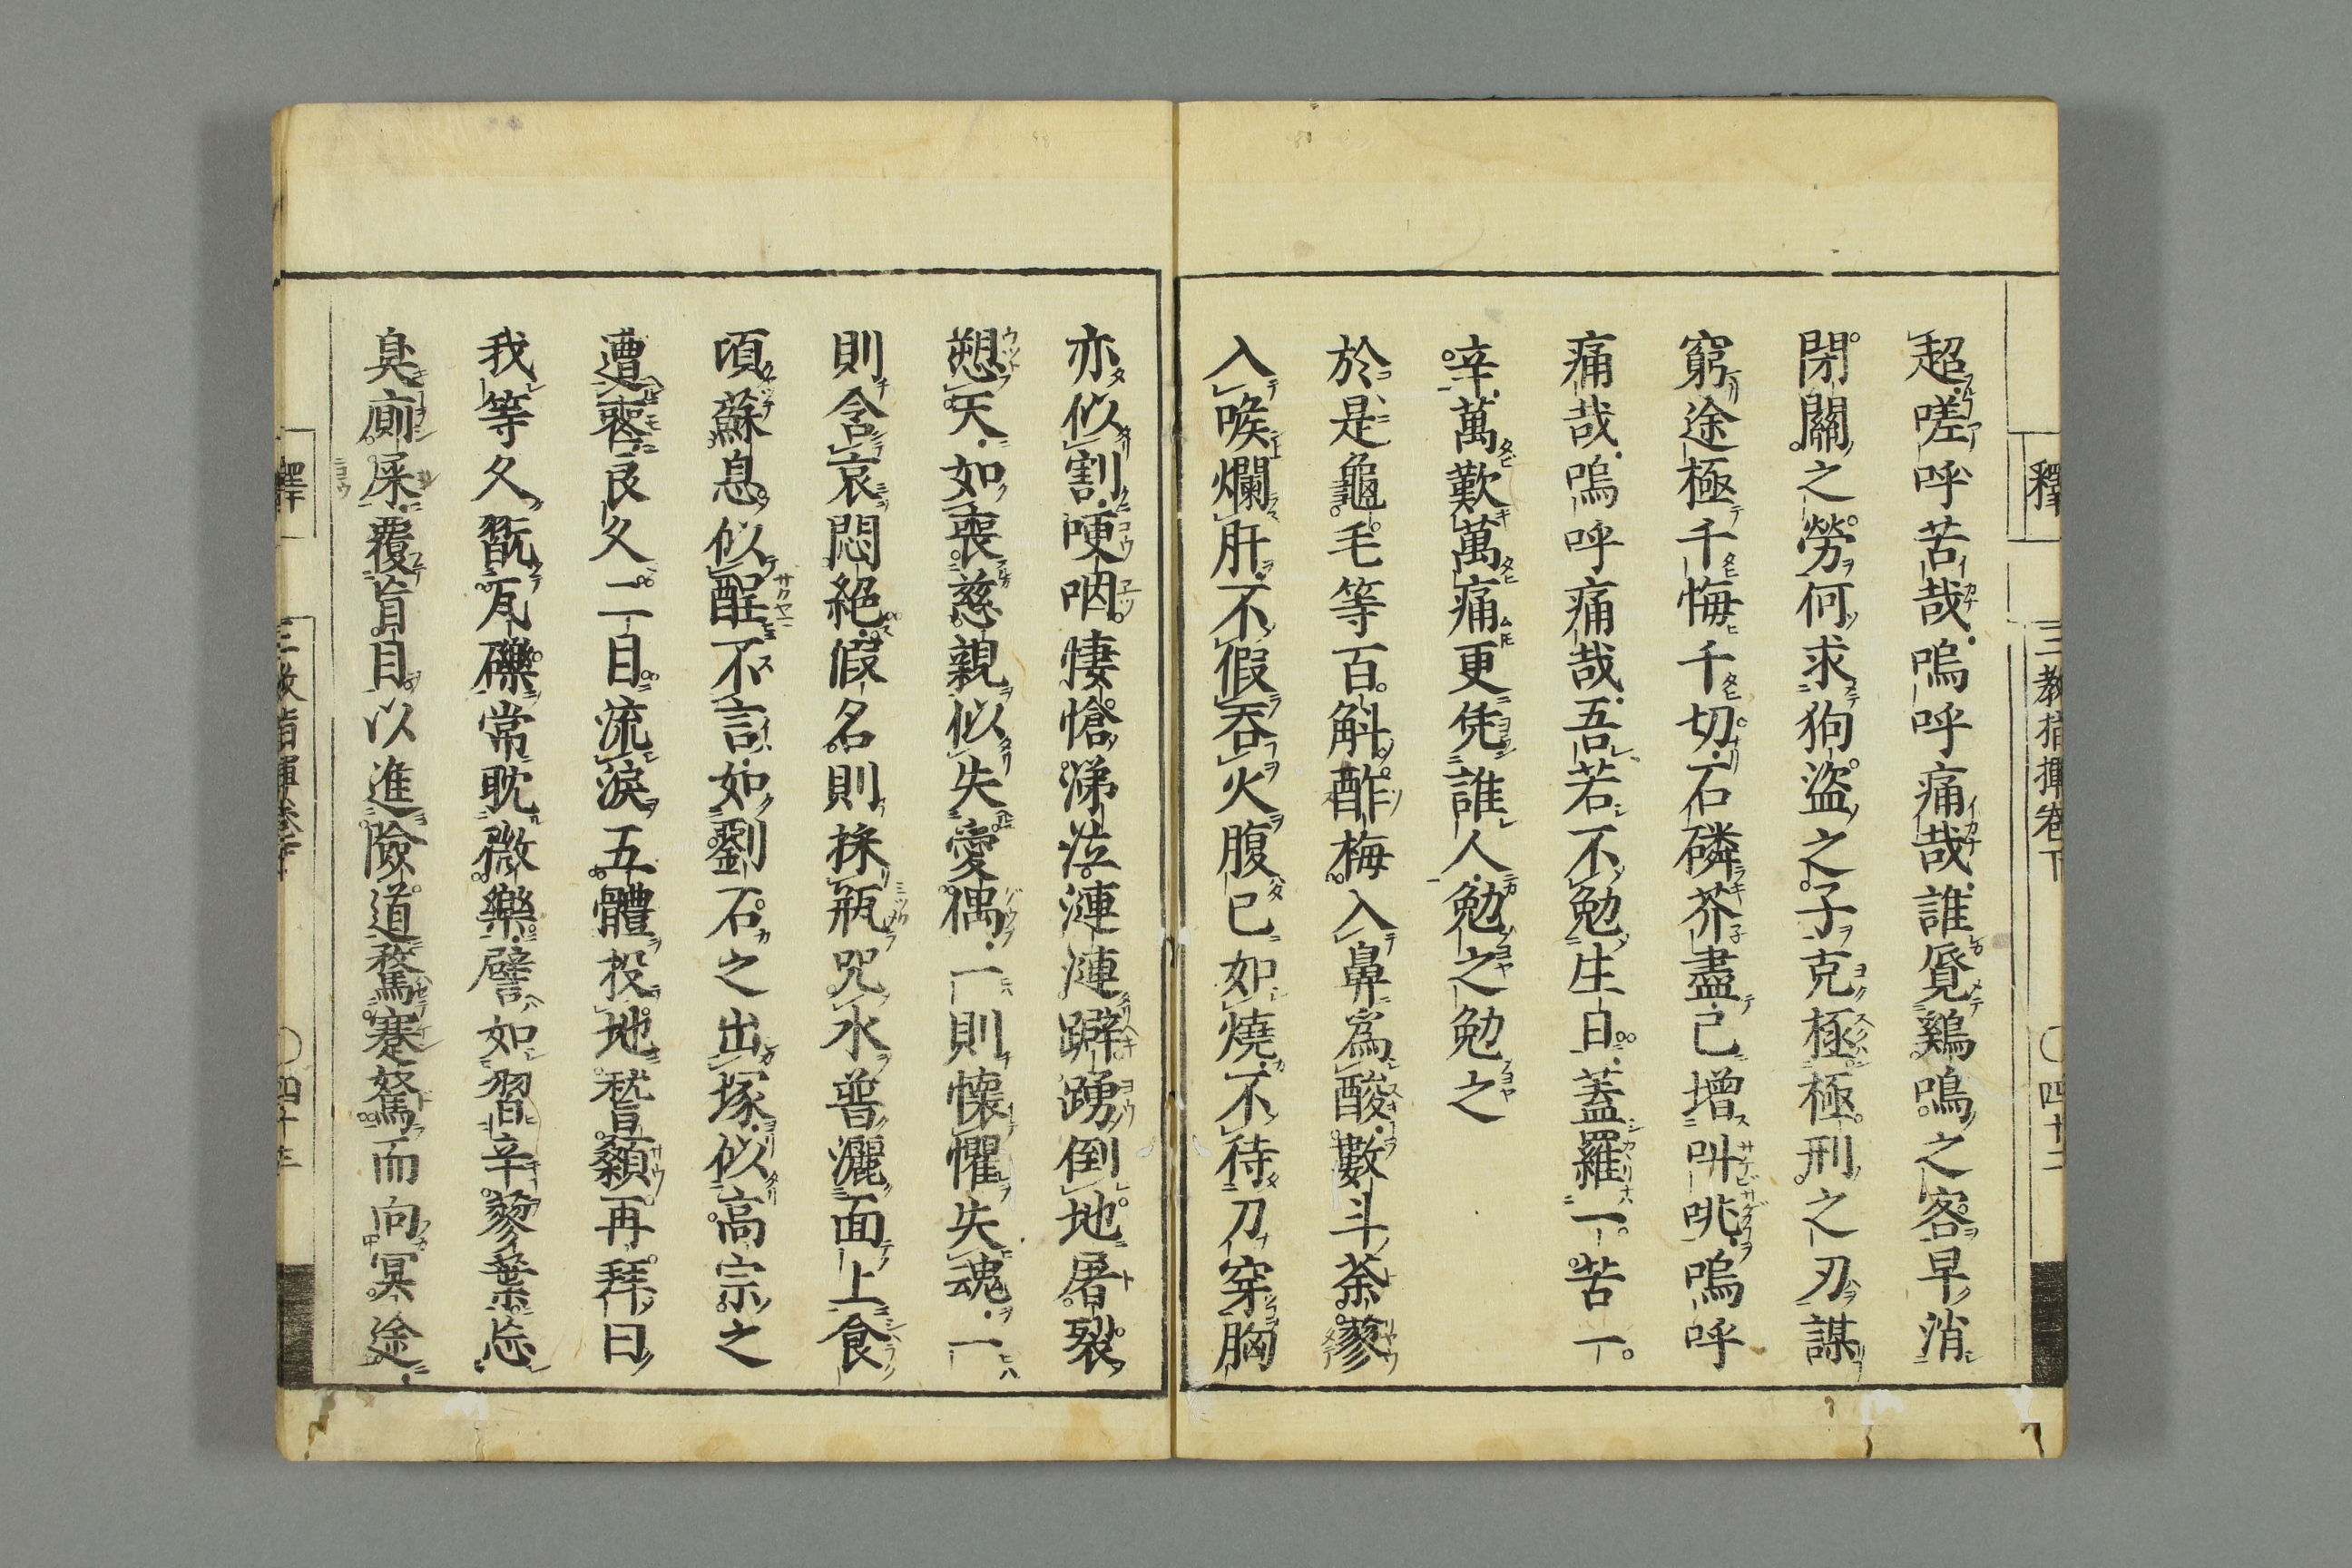 釋 三教指揮卷下 〇四十二
超嗟呼苦哉嗚呼痛哉誰覓鷄鳴之客早消
閉關之勞何求狗盜之子克極極刑之刃謀
窮途極千悔千切石磷芥盡已增叫咷嗚呼
痛哉嗚呼痛哉吾若不勉生日蓋羅一苦一
辛萬歎萬痛更凭誰人勉之勉之
於是龜毛等百斛酢梅入鼻為酸數斗荼蓼
入喉爛肝不假吞火腹已如燒不待刀穿胸
亦似割哽咽悽愴涕泣漣漣躃踴倒地屠裂
愬天如喪慈親似失愛偶一則懷懼失魂一
則含哀悶絕假名則採瓶咒水普灑面上食
頃蘇息似醒不言如劉石之出塚似高宗之
遭喪良久二目流淚五體投地稽顙再拜曰
我等久翫瓦礫常耽微樂譬如習辛蓼葉忘
臭廁屎覆盲目以進險道騖蹇駑而向冥途
釋 三教指揮卷下 〇四十三